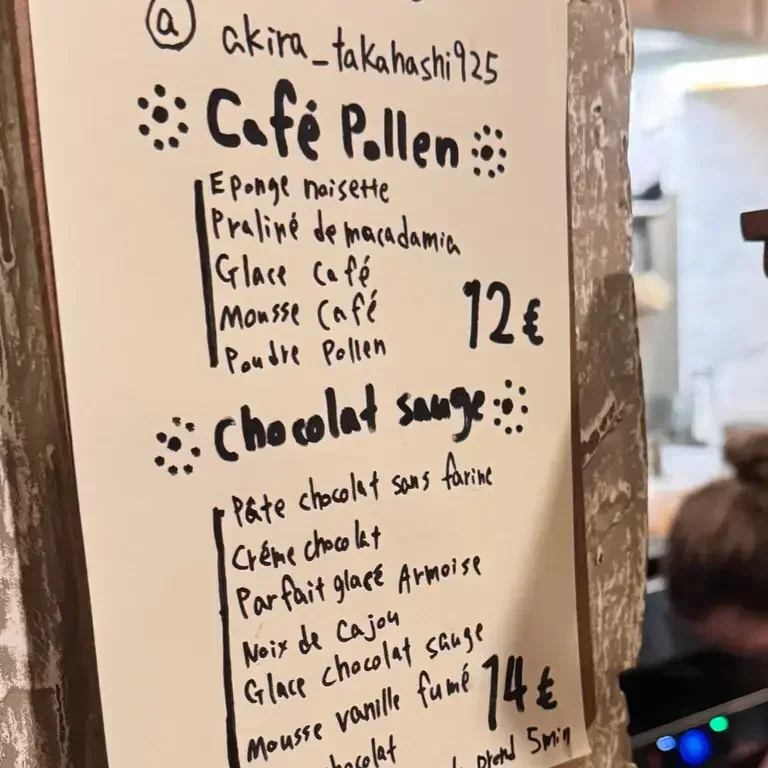 @ akira_takahashi925
Café Pollen
Eponge noisette
Praliné de macadamia
Glace Café
Mousse Café
Poudre Pollen
12€
Chocolat sauge
Pâte chocolat sans farine
Crème chocolat
Parfait glacé Armoise
Noix de Cajou
Glace chocolat sauge
Mousse vanille fumé
14€
chocolat
prend 5min